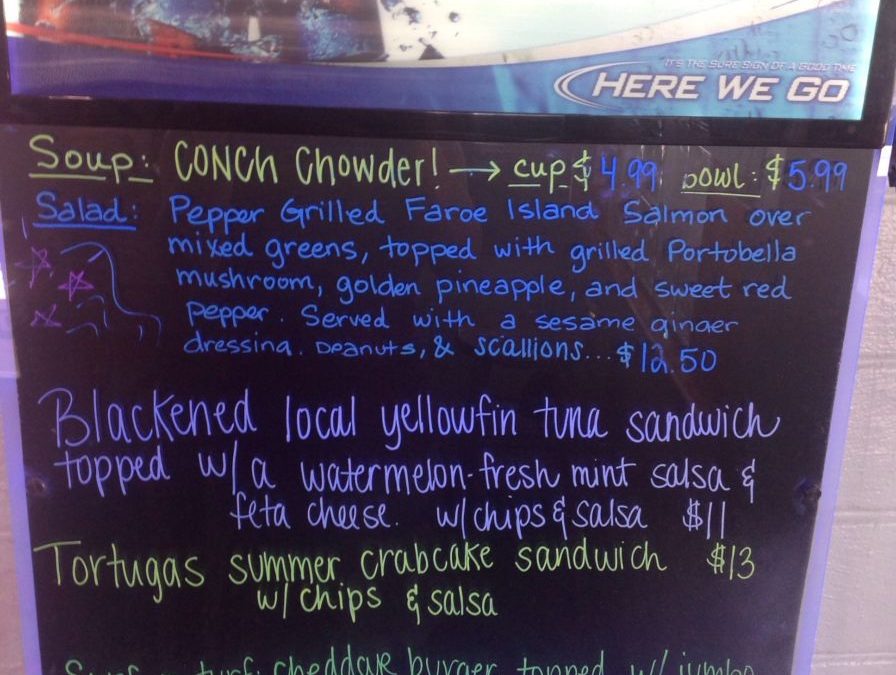 IT'S THE SURE SIGN OF A GOOD TIME
HERE WE GO
Soup: CONCH Chowder! → cup $4.99 bowl: $5.99
Salad: Pepper Grilled Faroe Island Salmon over
mixed greens, topped with grilled Portobella
mushroom, golden pineapple, and sweet red
pepper. Served with a sesame ginger
dressing, peanuts, & scallions... $12.50
Blackened local yellowfin tuna sandwich
topped w/ a watermelon-fresh mint salsa &
feta cheese. w/ chips & salsa $11
Tortugas summer crabcake sandwich $13
w/ chips & salsa
turf: cheddar burger topped w/ jumbo